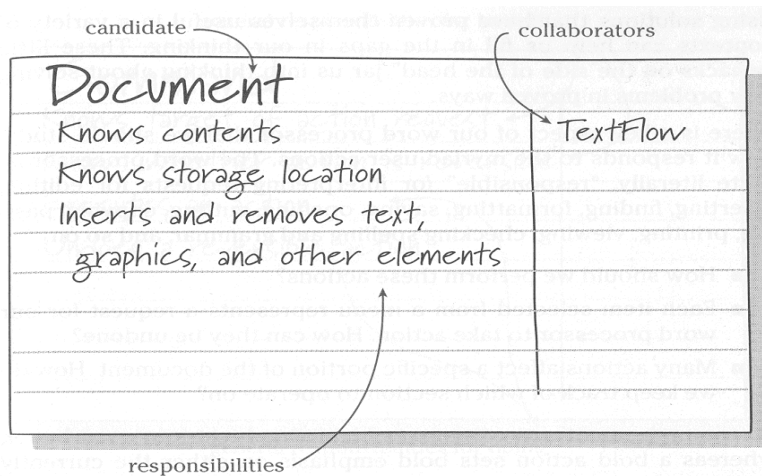 candidate
collaborators
Document
Knows contents
TextFlow
Knows storage location
Inserts and removes text,
graphics, and other elements
responsibilities